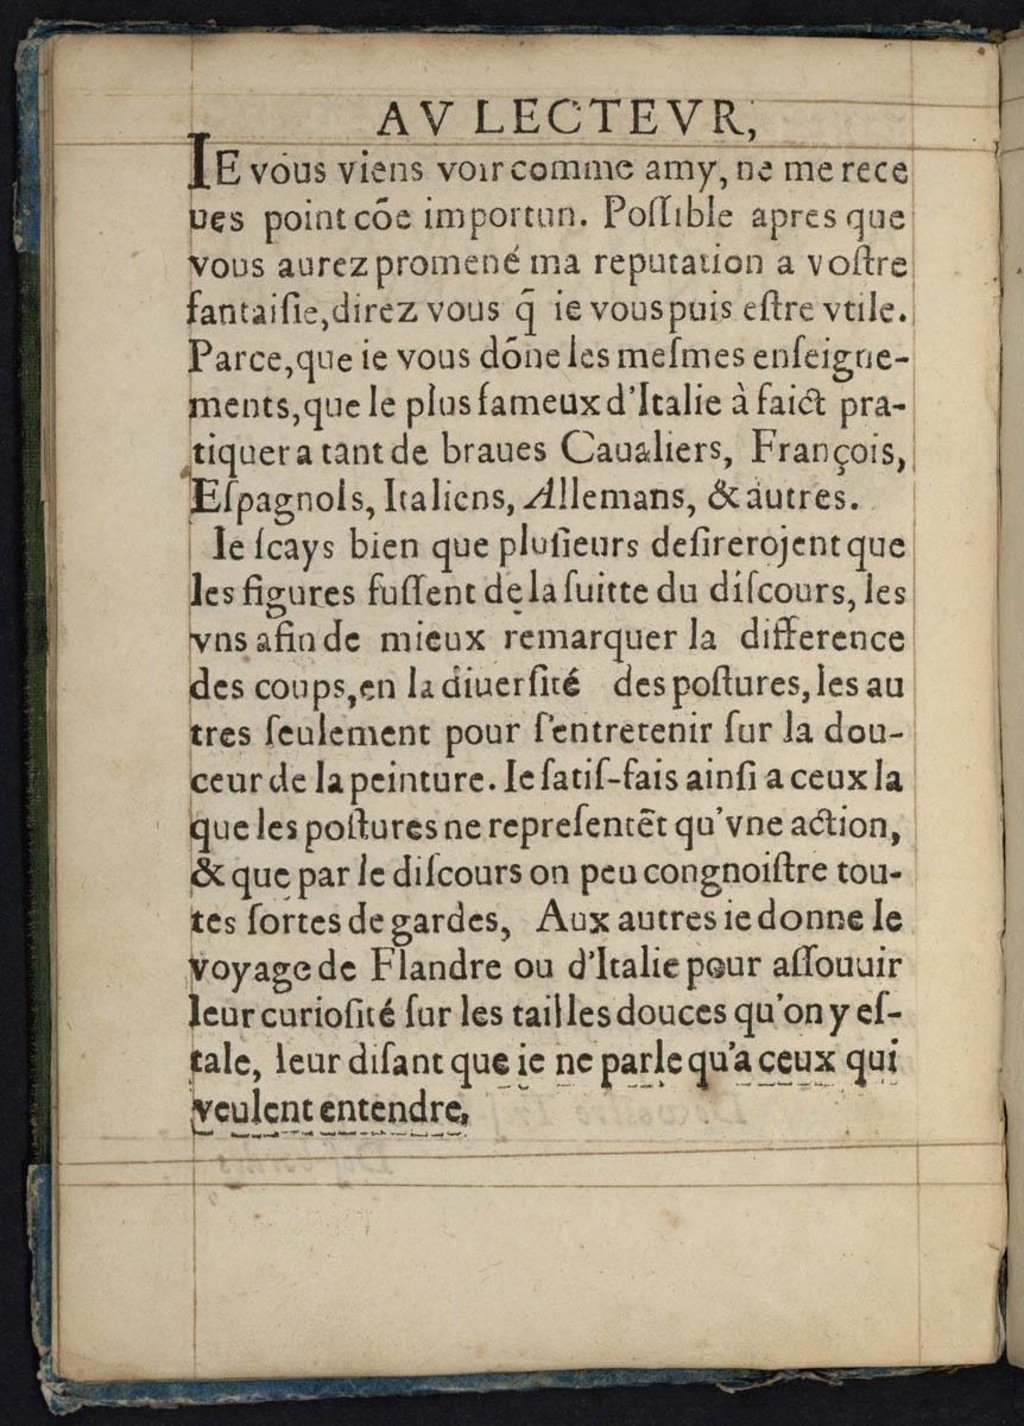 AV LECTEVR,
IE vous viens voir comme amy, ne me rece
ues point cõe importun. Poſſible apres que
vous aurez promené ma reputation a voſtre
fantaiſie, direz vous q̃ ie vous puis eſtre vtile.
Parce, que ie vous dõne les meſmes enſeigne-
ments, que le plus fameux d'Italie à faict pra-
tiquer a tant de braues Caualiers, François,
Eſpagnols, Italiens, Allemans, & autres.
Ie ſcays bien que pluſieurs deſirerojent que
les figures fuſſent de la ſuitte du diſcours, les
vns afin de mieux remarquer la difference
des coups, en la diuerſité des poſtures, les au
tres ſeulement pour ſ'entretenir ſur la dou-
ceur de la peinture. Ie ſatiſ-fais ainſi a ceux la
que les poſtures ne repreſentẽt qu'vne action,
& que par le diſcours on peu congnoiſtre tou-
tes ſortes de gardes, Aux autres ie donne le
voyage de Flandre ou d'Italie pour aſſouuir
leur curioſité ſur les tailles douces qu'on y eſ-
tale, leur diſant que ie ne parle qu'a ceux qui
veulent entendre,